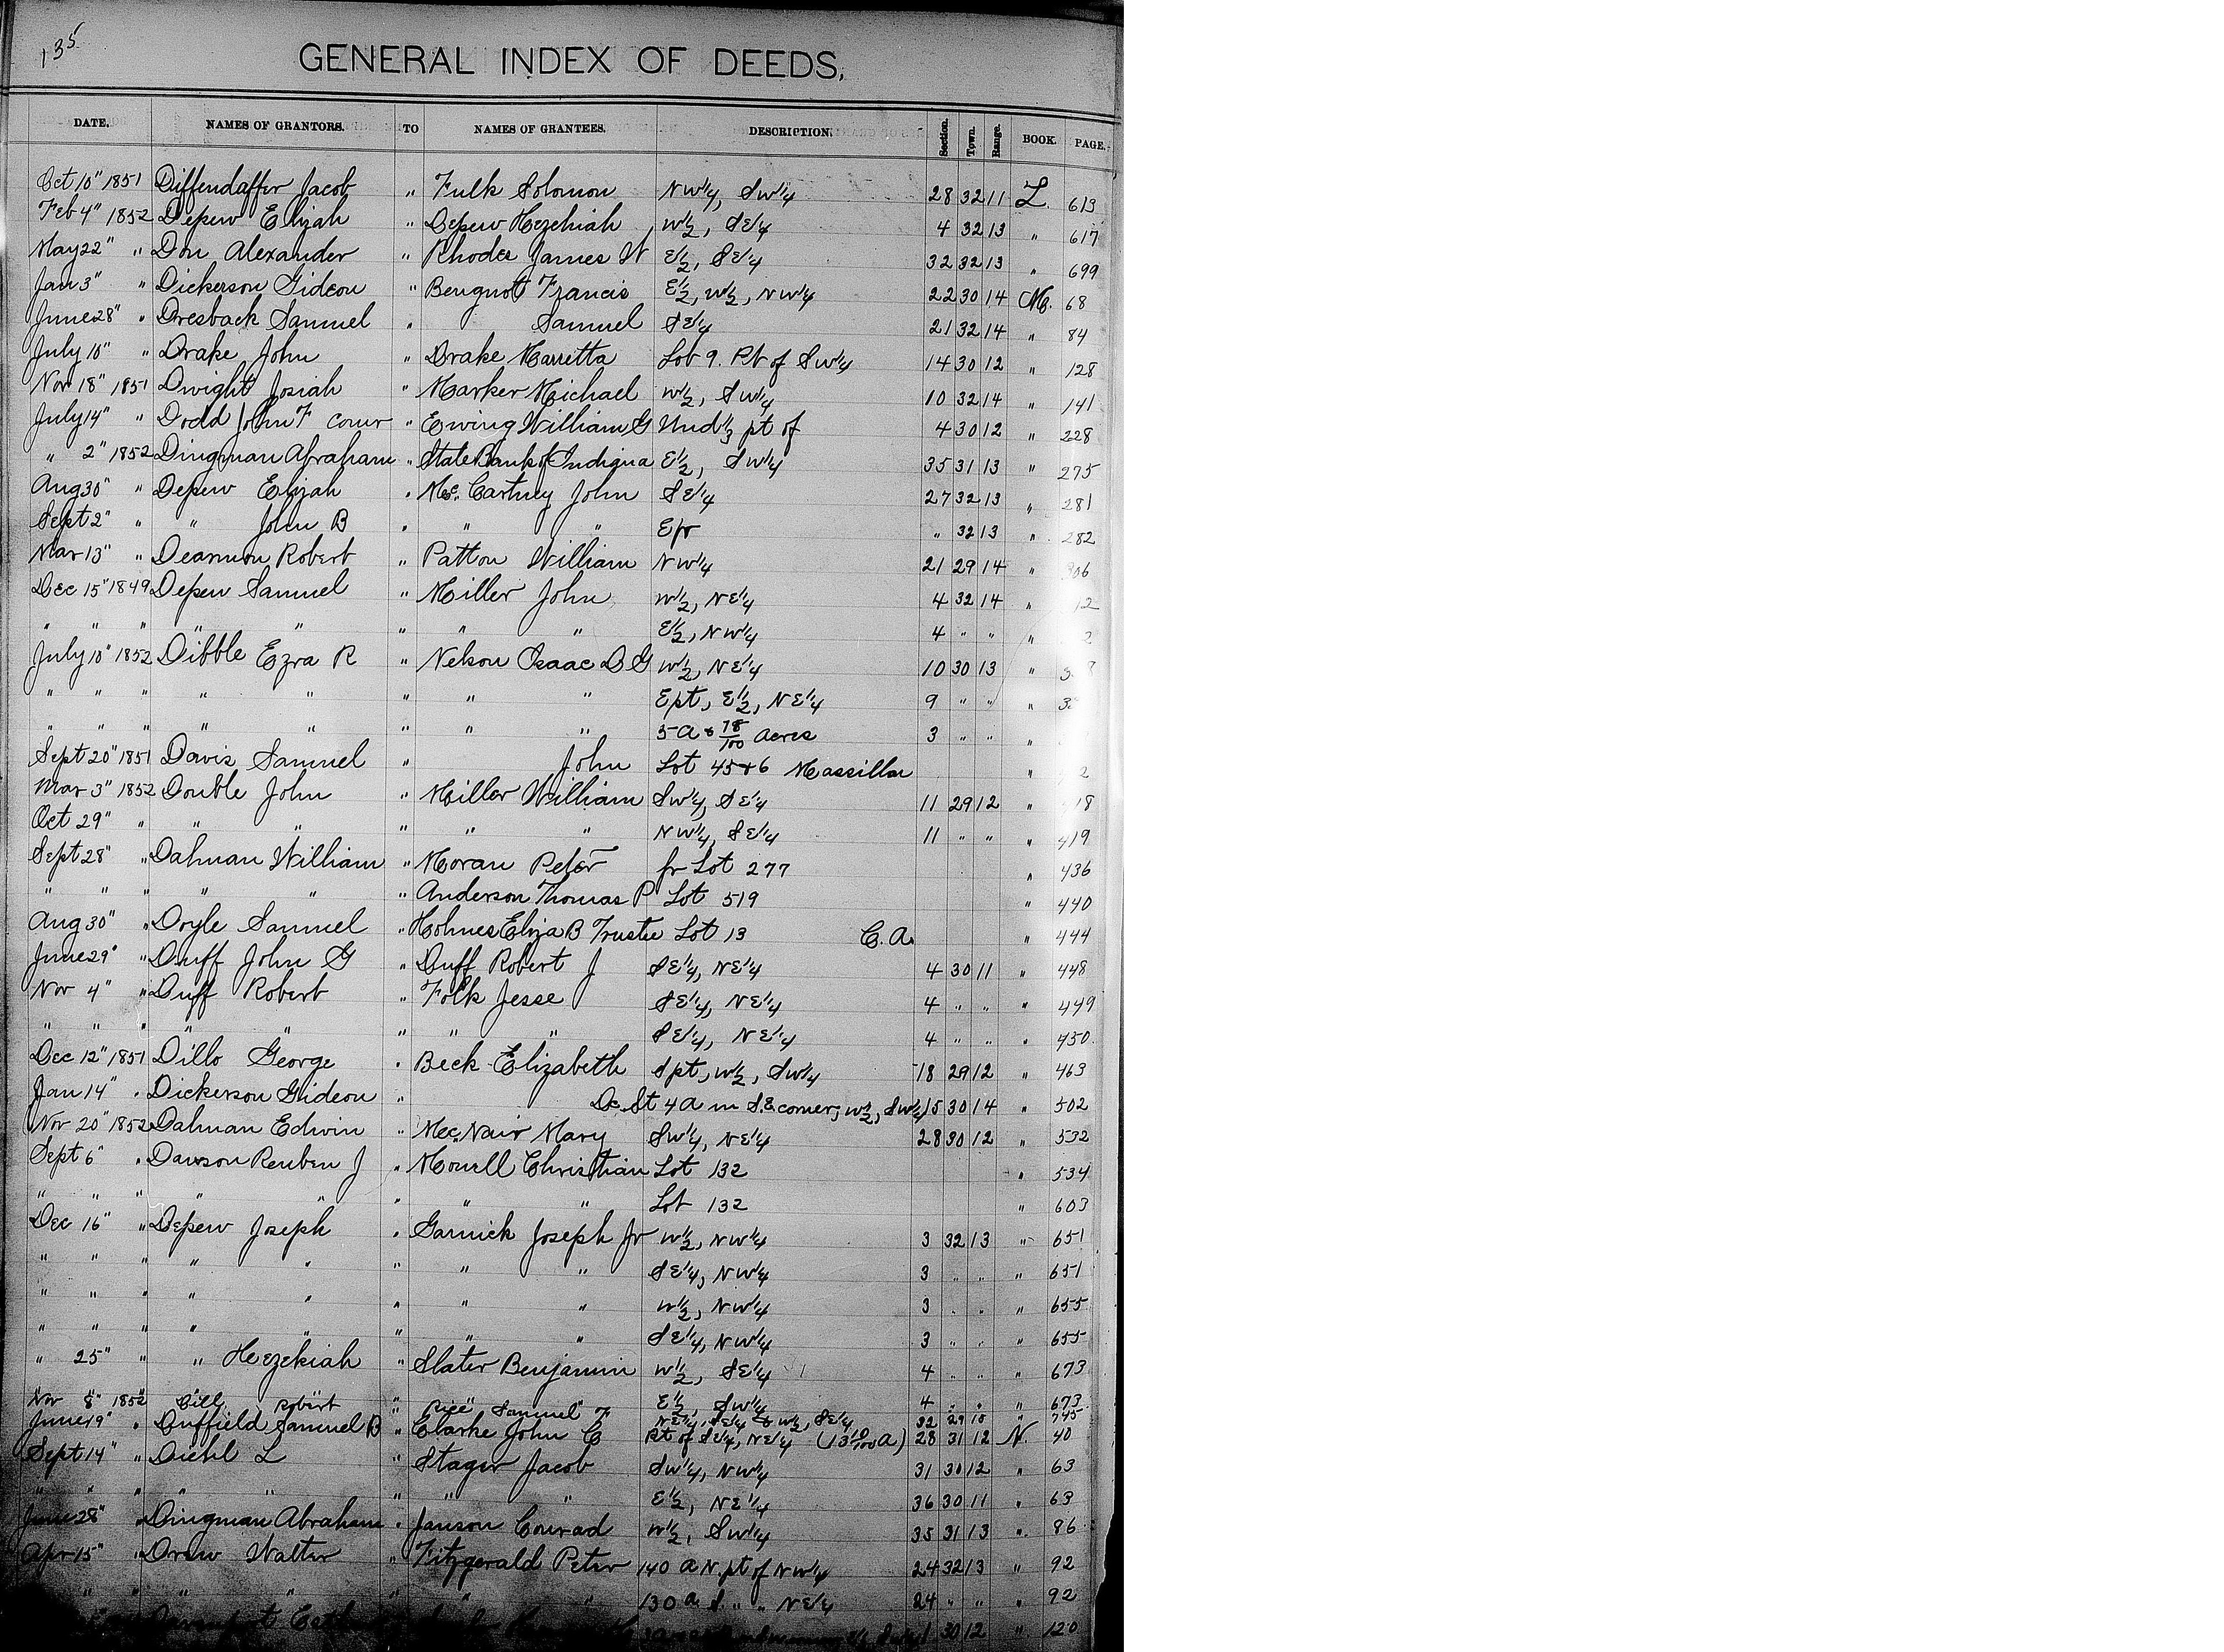 135
GENERAL INDEX OF DEEDS.
DATE. NAMES OF GRANTORS. TO NAMES OF GRANTEES. DESCRIPTION. Section. Town. Range. BOOK. PAGE.
Oct 10" 1851 Diffendaffer Jacob " Fulk Solomon NW1/4, SW1/4 28 32 11 L. 613
Feb 4" 1852 Depew Elijah " Depew Hezekiah W1/2, SE1/4 4 32 13 " 617
May 22" " Don Alexander " Rhodes James W E1/2, SE1/4 32 32 13 " 699
Jan 3" " Dickerson Gideon " Beugnot Francis E1/2, W1/2, NW1/4 22 30 14 M. 68
June 28" " Dresback Samuel " Samuel SE1/4 21 32 14 " 84
July 10" " Drake John " Drake Marretta Lot 9. Pt of SW1/4 14 30 12 " 128
Nov 18" 1851 Dwight Josiah " Marker Michael W1/2, SW1/4 10 32 14 " 141
July 14" " Dodd John F comr " Ewing William G Und 1/3 pt of 4 30 12 " 228
" 2" 1852 Dingman Abraham " State Bank of Indiana E1/2, SW1/4 35 31 13 " 275
Aug 30" " Depew Elijah " Mc. Cartney John SE1/4 27 32 13 " 281
Sept 2" " " John B " " " E fr " 32 13 " 282
Mar 13" " Dearmon Robert " Patton William NW1/4 21 29 14 " 306
Dec 15" 1849 Depew Samuel " Miller John W1/2, NE1/4 4 32 14 " 12
" " " " " " " " E1/2, NW1/4 4 " " " 2
July 10" 1852 Dibble Ezra R " Nelson Isaac D G W1/2, NE1/4 10 30 13 "
" " " " " " " " E pt, E1/2, NE1/4 9 " " "
" " " " " " " " 5 a & 78/100 acres 3 " " "
Sept 20" 1851 Davis Samuel " John Lot 45 & 6 Massillon " 2
Mar 3" 1852 Double John " Miller William SW1/4, SE1/4 11 29 12 " 18
Oct 29" " " " " " " NW1/4, SE1/4 11 " " " 419
Sept 28" " Dahman William " Moran Peter fr Lot 277 " 436
" " " " " " Anderson Thomas P Lot 519 " 440
Aug 30" " Doyle Samuel " Holmes Eliza B Trustee Lot 13 C. A. " 444
June 29" " Duff John G " Duff Robert J SE1/4, NE1/4 4 30 11 " 448
Nov 4" " Duff Robert " Folk Jesse SE1/4, NE1/4 4 " " " 449
" " " " " " " " SE1/4, NE1/4 4 " " " 450
Dec 12" 1851 Dillo George " Beck Elizabeth S pt, W1/2, SW1/4 18 29 12 " 463
Jan 14" " Dickerson Gideon " De. St 4 a in S.E corner, W1/2, SW1/4 15 30 14 " 502
Nov 20" 1852 Dahman Edwin " Mc. Nair Mary SW1/4, NE1/4 28 30 12 " 532
Sept 6" " Dawson Reuben J " Morell Christian Lot 132 " 534
" " " " " " " " Lot 132 " 603
Dec 16" " Depew Joseph " Garnick Joseph Jr W1/2, NW1/4 3 32 13 " 651
" " " " " " " " SE1/4, NW1/4 3 " " " 651
" " " " " " " " W1/2, NW1/4 3 " " " 655
" " " " " " " " SE1/4, NW1/4 3 " " " 655
" 25" " " Heezekiah " Slater Benjamin W1/2, SE1/4 4 " " " 673
" " " " " " " " E1/2, SW1/4 4 " " " 673
Nov 8" 1852 Dill Robert " Rice Samuel F NE1/4, SE1/4 & W1/2, SE1/4 32 29 15 " 745
June 19" " Duffield Samuel B " Clarke John C Pt of SE1/4, NE1/4 28 31 12 N. 40
Sept 14" " Diehl L " Stager Jacob SW1/4, NW1/4 31 30 12 " 63
" " " " " " " " E1/2, NE1/4 36 30 11 " 63
June 28" " Dingman Abraham " Janson Conrad W1/2, SW1/4 35 31 13 " 86
Apr 15" " Draw Walter " Fitzgerald Peter 140 a N. pt of NW1/4 24 32 13 " 92
" " " " " " " 130 a S. " " NE1/4 24 " " " 92
1 30 12 " 120